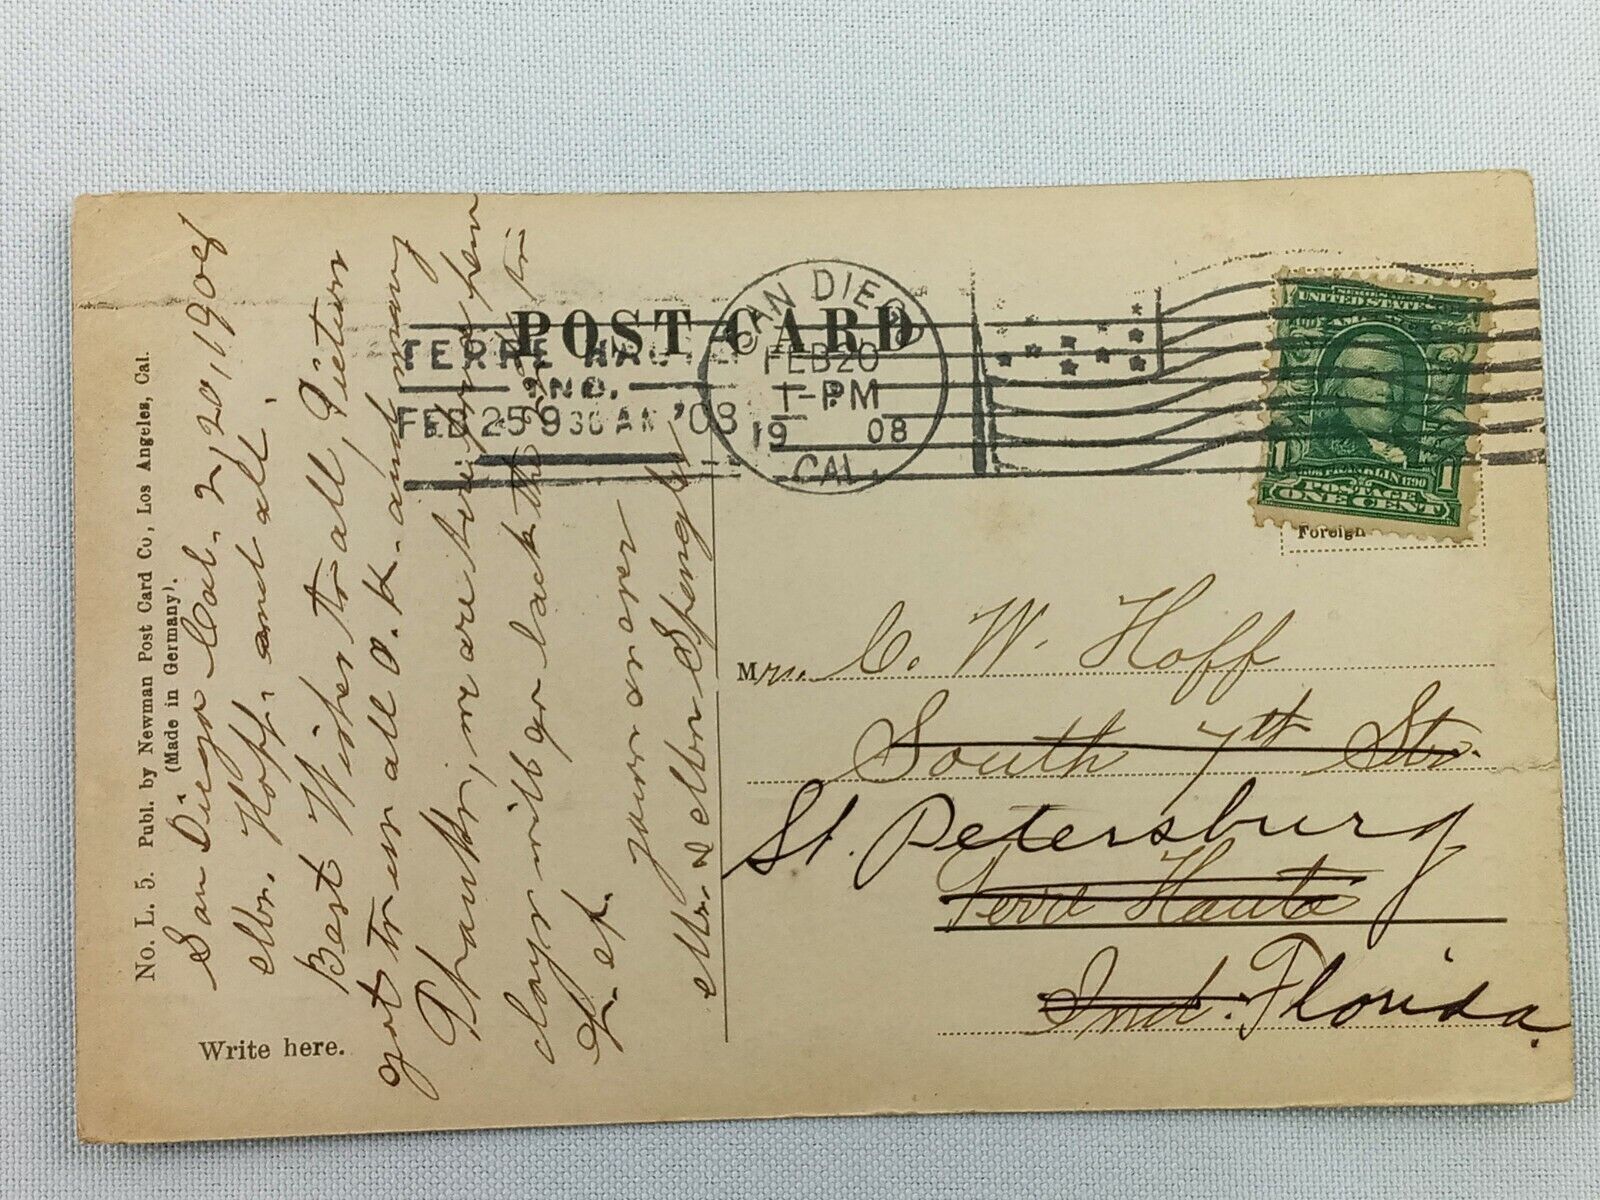 No. L. 5. Publ. by Newman Post Card Co., Los Angeles, Cal.
(Made in Germany).
San Diego Cal. 2, 20, 1908
Mr. Hoff. and all.
Best Wishes to all, Pictures
got to us all O.K. and many
Thanks, we are
days will go back the
yours as ever
Mr. & Mrs
Write here.
POST CARD
TERRE HAUTE
IND.
FEB 25 9 30 AM '08
SAN DIEGO
FEB 20
1-PM
19 08
CAL.
UNITED STATES
AMERICA
FRANKLIN 1790
1 POSTAGE 1
ONE CENT
Foreign
Mr. C. W. Hoff
South 7th Str.
St. Petersburg
Terre Haute
Ind. Florida.